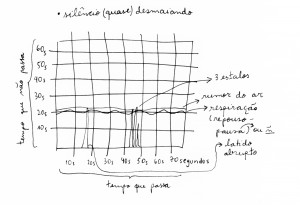 • silêncio (quase) desmaiando
tempo que não passa
60s
50s
40s
30s
20s
10s
3 estalos
rumor do ar
respiração
(repouso-
pausa) ou
latido
abrupto
10s 20s 30s 40s 50s 60s 70 segundos
tempo que passa